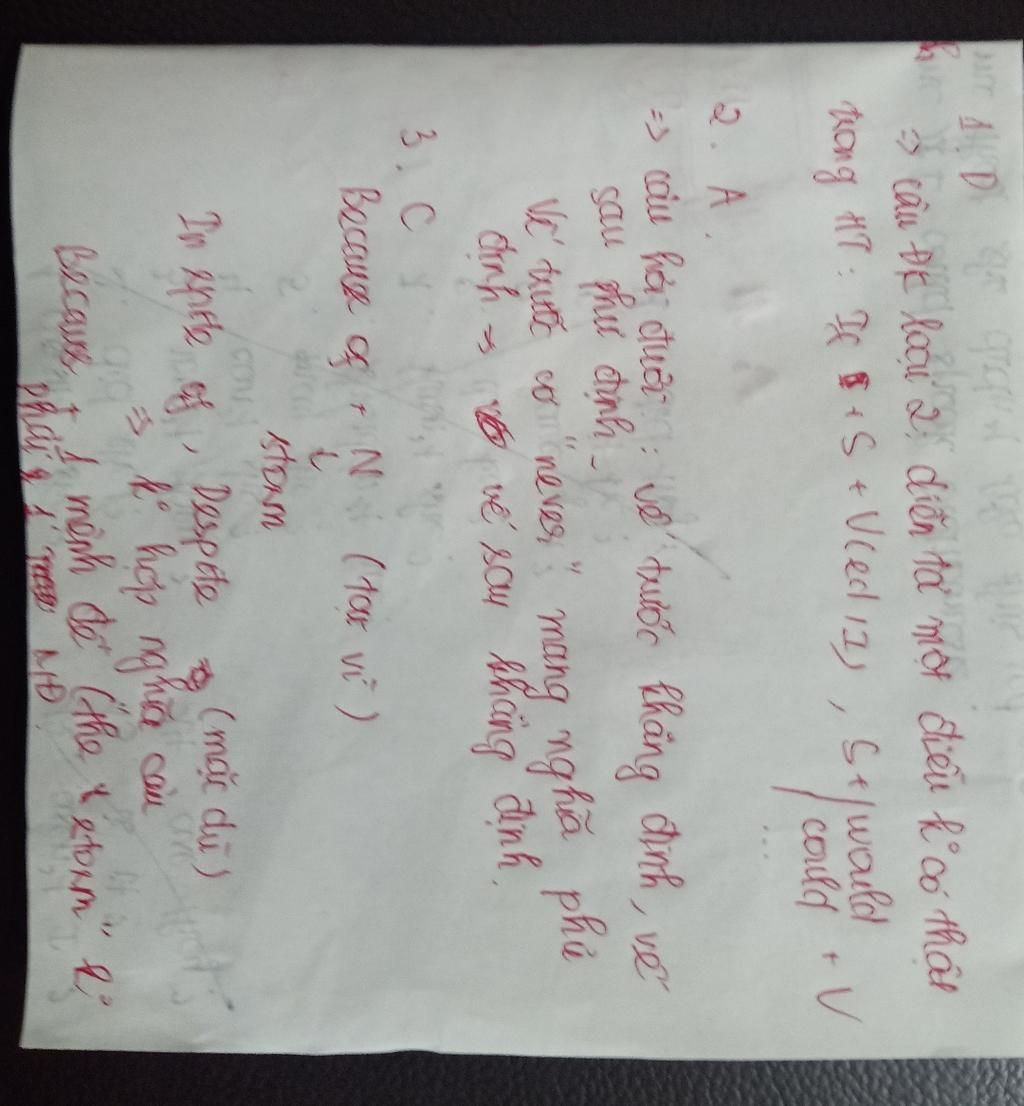 1. D
=> câu ĐK loại 2: diễn tả một điều k° có thật
trong HT: If + S + V(ed/I), S + would + V
could
...
2. A.
=> câu hỏi đuôi: vế trước khẳng định, vế
sau phủ định.
Vế trước có "never" mang nghĩa phủ
định => vế sau khẳng định.
3. C
Because of + N (tại vì)
↓
storm
In spite of, Despite (mặc dù)
=> k° hợp nghĩa câu
Because + 1 mệnh đề ("the storm" k°
phải 1 MĐ